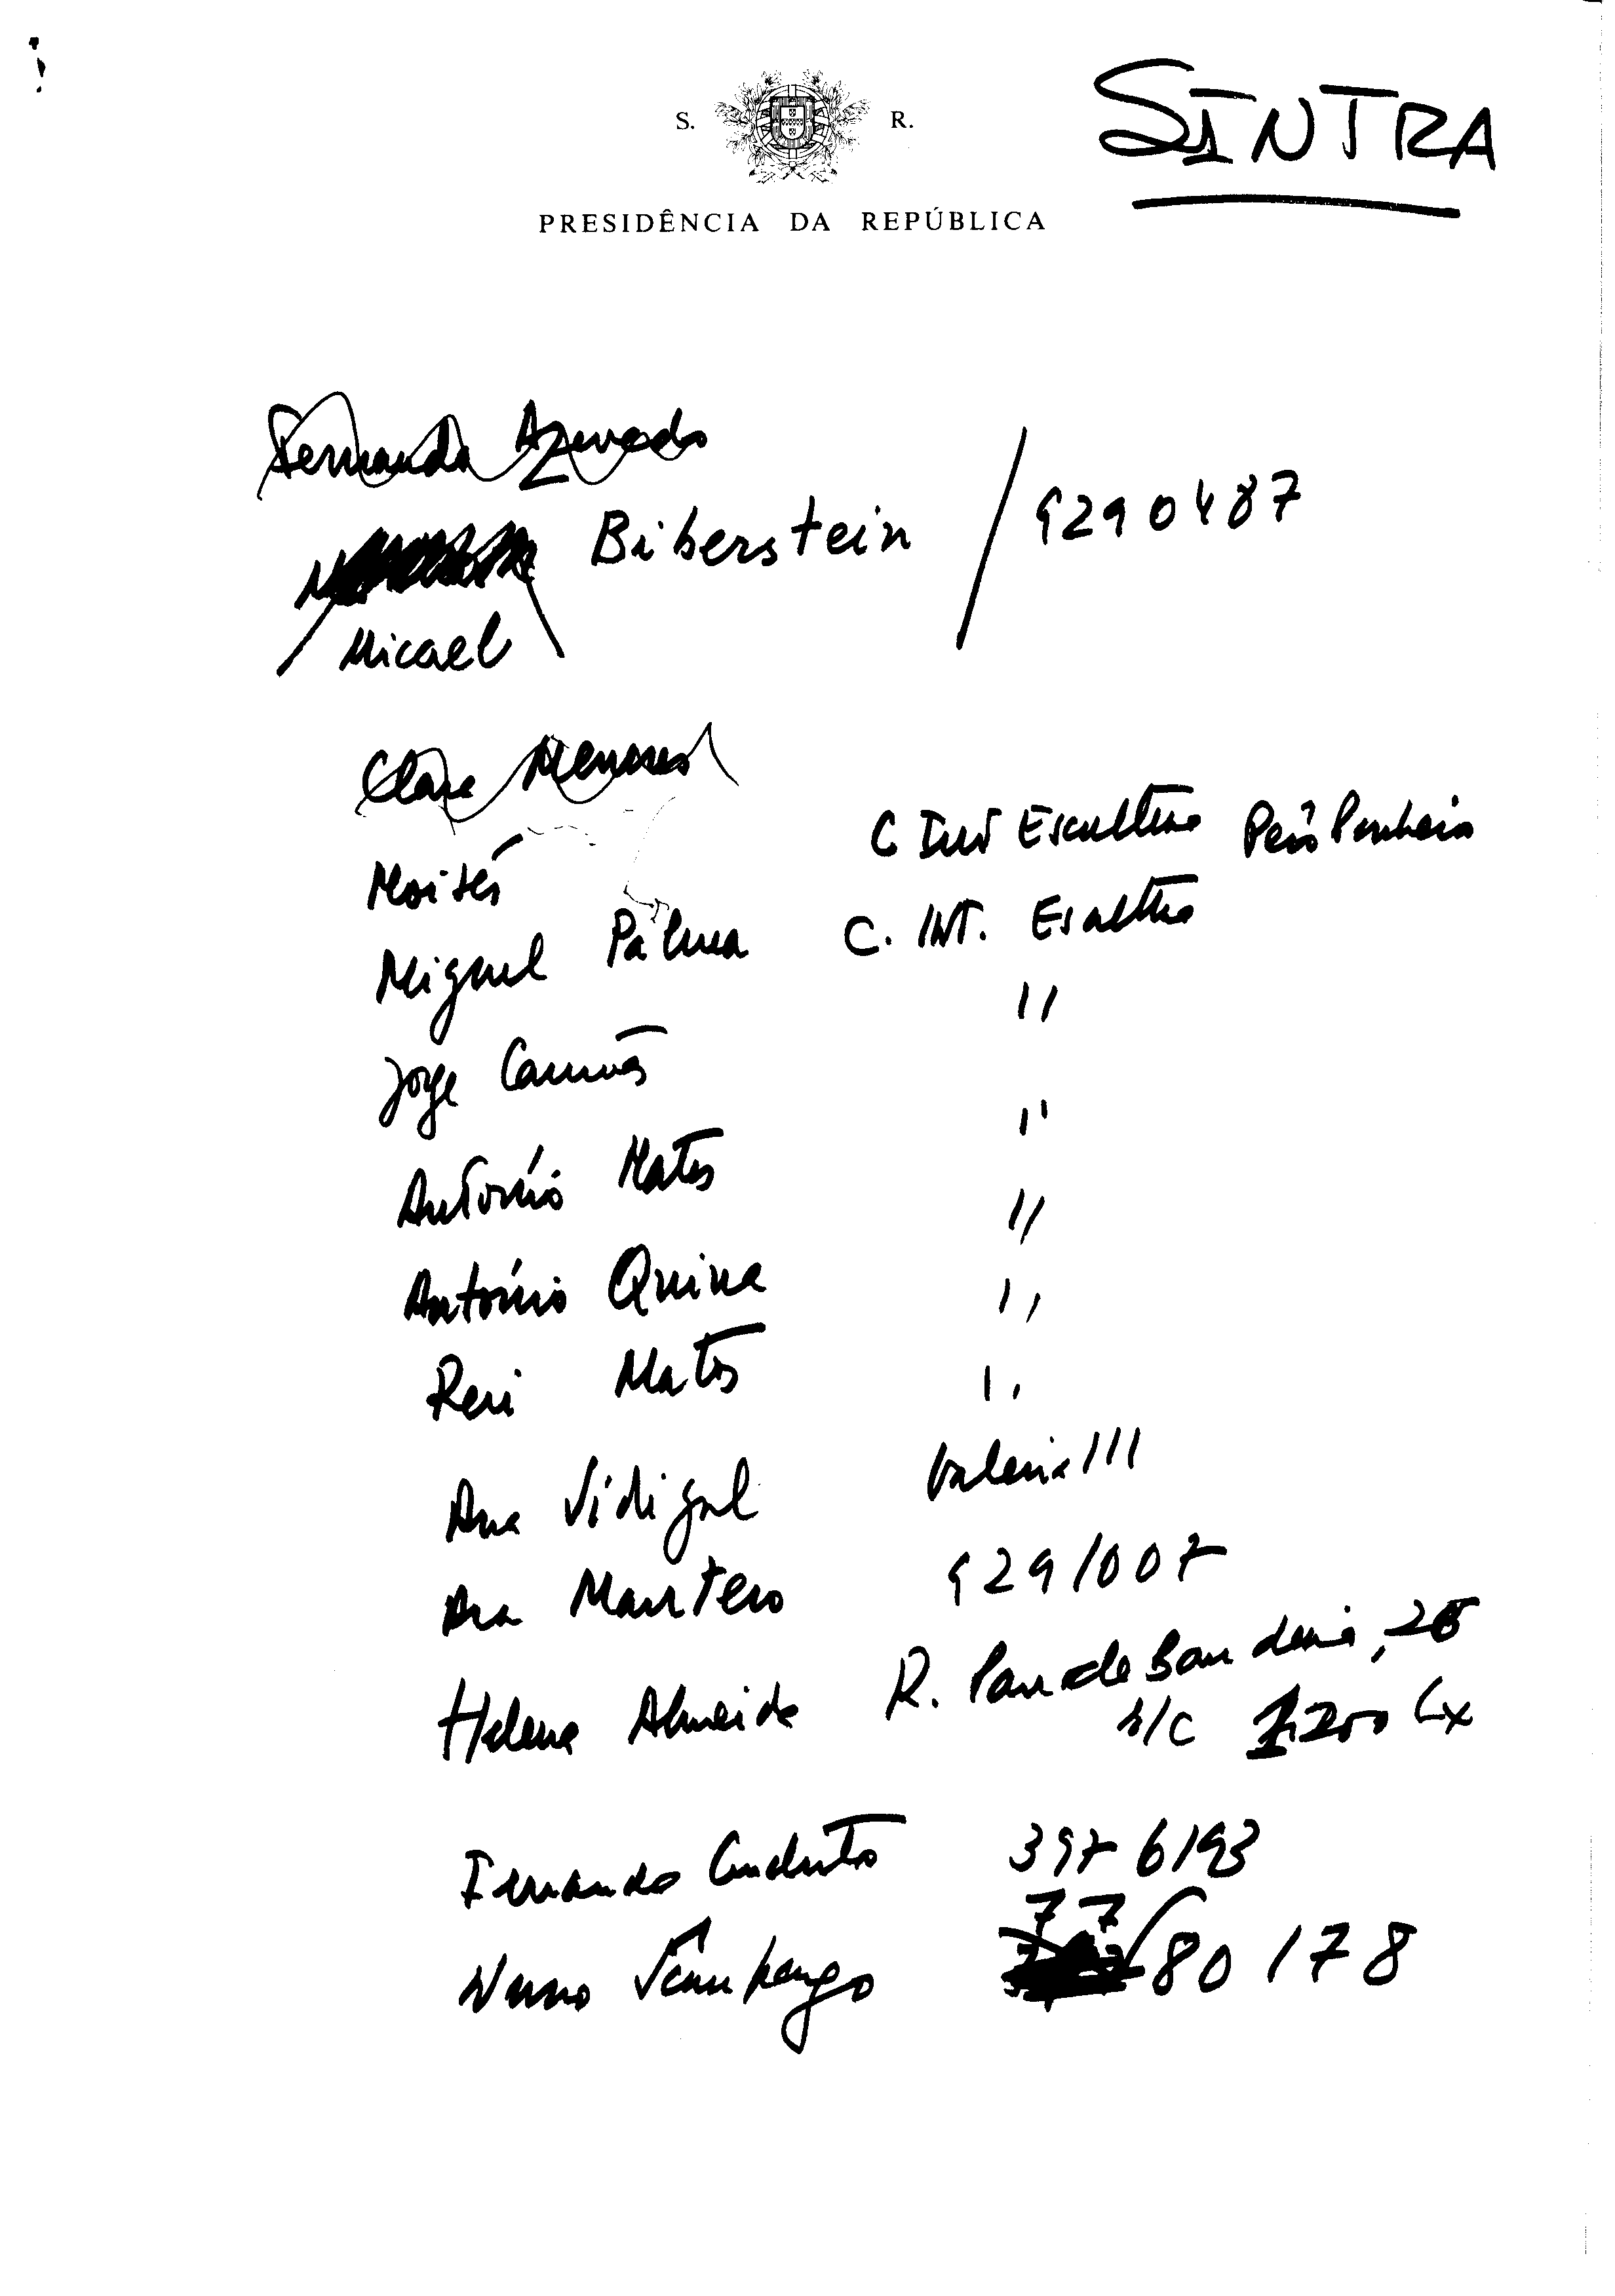 SINTRA
S. R.
PRESIDÊNCIA DA REPÚBLICA
Fernanda Azevedo
Biberstein / 9290487
Micael
Clara Menéres
Moisés C Int Escultura Pero Pinheiro
Miguel Palma C. INT. Escultura
Jorge Camões "
António Matos "
António Quina "
Reri Matos "
Ana Vidigal Valeria 111
Ana Mantero 9291007
Helena Almeida R. Pau de Bandeira, 26
r/c 1200 Lx
Fernando Conduto 3976193
77
Nuno Sampayo 80178